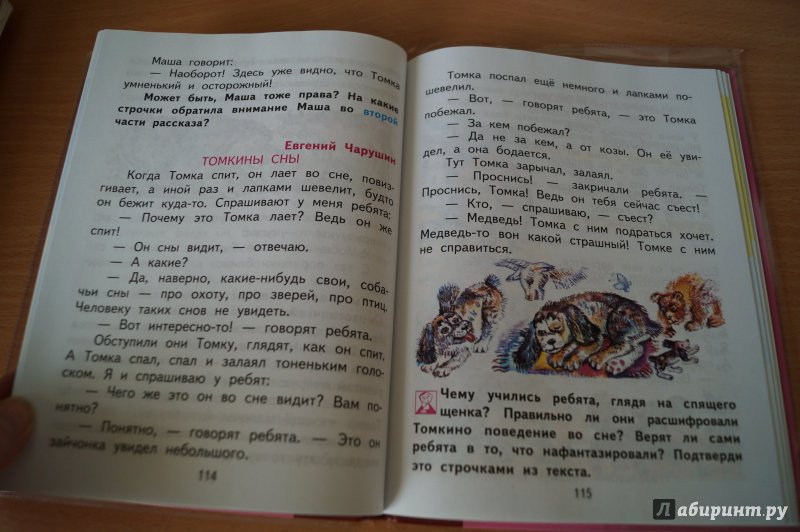 Маша говорит:
— Наоборот! Здесь уже видно, что Томка
умненький и осторожный!
Может быть, Маша тоже права? На какие
строчки обратила внимание Маша во второй
части рассказа?
Евгений Чарушин
ТОМКИНЫ СНЫ
Когда Томка спит, он лает во сне, повиз-
гивает, а иной раз и лапками шевелит, будто
он бежит куда-то. Спрашивают у меня ребята:
— Почему это Томка лает? Ведь он же
спит!
— Он сны видит, — отвечаю.
— А какие?
— Да, наверно, какие-нибудь свои, соба-
чьи сны — про охоту, про зверей, про птиц.
Человеку таких снов не увидеть.
— Вот интересно-то! — говорят ребята.
Обступили они Томку, глядят, как он спит.
А Томка спал, спал и залаял тоненьким голо-
ском. Я и спрашиваю у ребят:
— Чего же это он во сне видит? Вам по-
нятно?
— Понятно, — говорят ребята. — Это он
зайчонка увидел небольшого.
114
Томка поспал ещё немного и лапками по-
шевелил.
— Вот, — говорят ребята, — это Томка
побежал.
— За кем побежал?
— Да не за кем, а от козы. Он её уви-
дел, а она бодается.
Тут Томка зарычал, залаял.
— Проснись! — закричали ребята. —
Проснись, Томка! Ведь он тебя сейчас съест!
— Кто, — спрашиваю, — съест?
— Медведь! Томка с ним подраться хочет.
Медведь-то вон какой страшный! Томке с ним
не справиться.
Чему учились ребята, глядя на спящего
щенка? Правильно ли они расшифровали
Томкино поведение во сне? Верят ли сами
ребята в то, что нафантазировали? Подтверди
это строчками из текста.
115
Лабиринт.ру